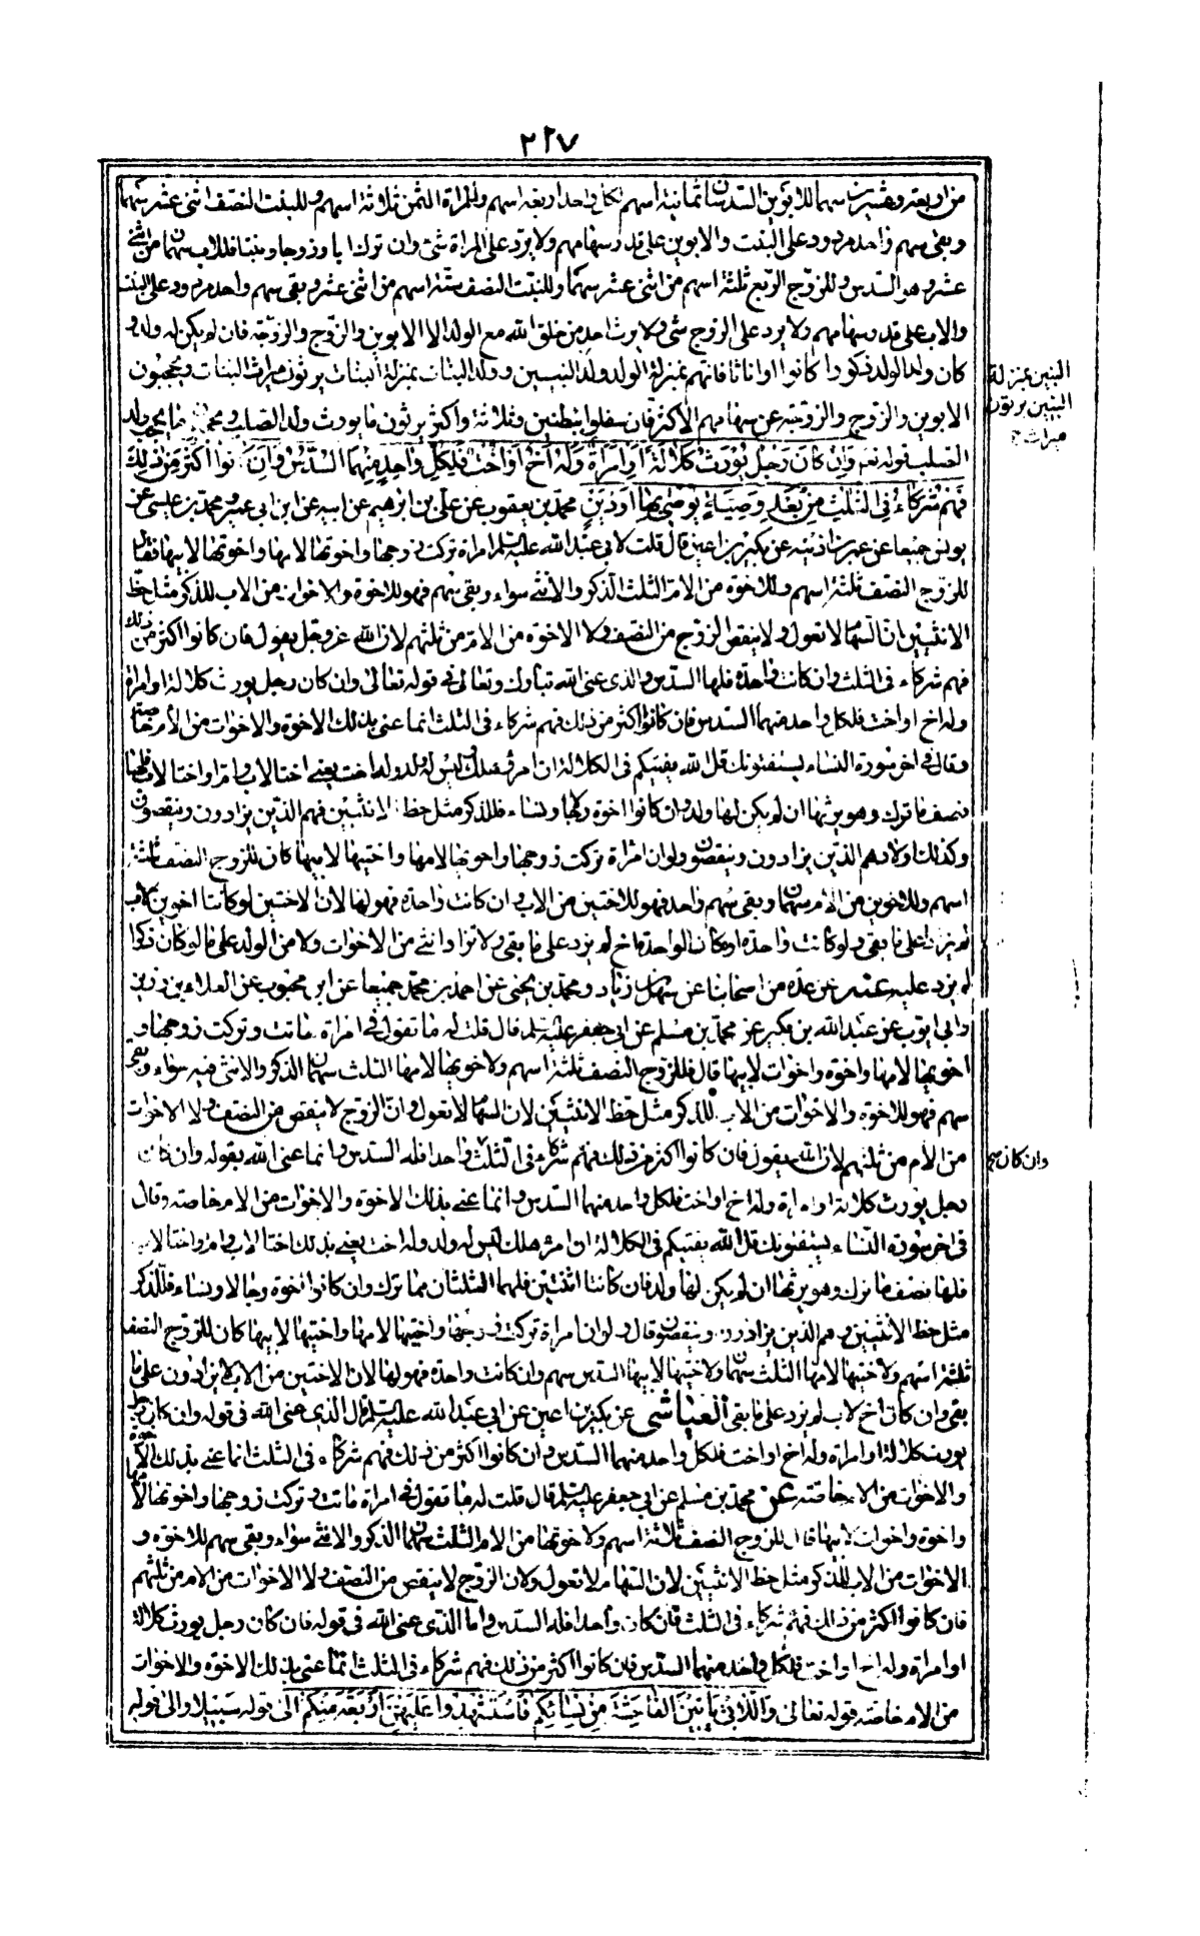 ٢٢٧
من اربعة وعشرين سهما للابوين السدسان ثمانية اسهم لكل واحد اربعة اسهم وللمراة الثمن ثلاثة اسهم وللبنت النصف اثنى عشر سهما
وبقى سهم واحد مردود على البنت والابوين على قدر سهامهم ولا يرد على المراة شئ وان ترك ابا وزوجا وبنتا فللاب سهمان من اثنى
عشر وهو السدس وللزوج الربع ثلثة اسهم من اثنى عشر سهما وللبنت النصف ستة اسهم من اثنى عشر وبقى سهم واحد مردود على البنت
والاب على قدر سهامهم ولا يرد على الزوج شئ ولا يرث احد من خلق الله مع الولد الا الابوين والزوج والزوجة فان لم يكن له ولد و
كان ولد الولد ذكورا كانوا او اناثا فانهم بمنزلة الولد ولد البنين وولد البنات بمنزلة البنات يرثون ميراث البنات ويحجبون
البنين بمنزلة
البنين يرثون
ميراث
الابوين والزوج والزوجة عن سهامهم الاكثر فان سفلوا ببطنين وثلاثة واكثر يرثون ما يورث ولد الصلب ويحجبون ما يحجب ولد
الصلب قوله تعم وَاِن كَانَ رَجُلٌ يُورَثُ كَلَالَةً اَوِ امْرَاَةٌ وَلَهُ اَخٌ اَوْ اُخْتٌ فَلِكُلِّ وَاحِدٍ مِنْهُمَا السُّدُسُ فَاِن كَانُوا اَكْثَرَ مِنْ ذٰلِكَ
فَهُمْ شُرَكَاءُ فِي الثُّلُثِ مِنْ بَعْدِ وَصِيَّةٍ يُوصَى بِهَا اَوْ دَيْنٍ محمد بن يعقوب عن على بن ابرهيم عن ابيه عن ابن ابي عمير ومحمد بن عيسى عن
يونس جميعا عن عمر بن اذينه عن بكير بن اعين قال قلت لابي عبد الله عليه السلم امراة تركت زوجها واخوتها لامها واخوتها لابيها فقال
للزوج النصف ثلثة اسهم وللاخوة من الام الثلث الذكر والانثى سواء وبقى سهم فهو للاخوة والاخوات من الاب للذكر مثل حظ
الانثيين ان السهام لا تعول ولا ينقص الزوج من النصف ولا الاخوة من الام من ثلثهم لان الله عز وجل يقول فان كانوا اكثر من ذلك
فهم شركاء فى الثلث وان كانت واحدة فلها السدس والذى عنى الله تبارك وتعالى فى قوله تعالى وان كان رجل يورث كلالة او امراة
وله اخ او اخت فلكل واحد منهما السدس فان كانوا اكثر من ذلك فهم شركاء فى الثلث انما عنى بذلك الاخوة والاخوات من الام خاصة
وقال فى اخر سورة النساء يستفتونك قل الله يفتيكم فى الكلالة ان امرؤ هلك ليس له ولد وله اخت يعني اختا لاب وام او اختا لاب فلها
نصف ما ترك وهو يرثها ان لم يكن لها ولد وان كانوا اخوة رجالا ونساء فللذكر مثل حظ الانثيين فهم الذين يزادون وينقصون
وكذلك اولادهم الذين يزادون وينقصون ولو ان امراة تركت زوجها واخوتها لامها واختيها لابيها كان للزوج النصف ثلثة
اسهم وللاخوين من الام سهمان وبقى سهم واحد فهو للاختين من الاب وان كانت واحدة فهو لها لان الاختين لو كانتا اخوين لاب
لم يزادا على ما بقى ولو كانت واحدة او كان الواحدة اخ لم يزد على ما بقى ولا تزاد انثى من الاخوات ولا من الولد على ما لو كان ذكرا
لم يزد عليه عنه عن عدة من اصحابنا عن سهل بن زياد ومحمد بن يحيى عن احمد بن محمد جميعا عن ابن محبوب عن العلاء بن رزين
وابى ايوب عن عبد الله بن بكير عن محمد بن مسلم عن ابى جعفر عليه السلم قال قلت له ما تقول فى امراة ماتت وتركت زوجها و
اخوتها لامها واخوة واخوات لابيها قال للزوج النصف ثلثة اسهم ولاخوتها لامها الثلث سهمان الذكر والانثى فيه سواء وبقى
سهم فهو للاخوة والاخوات من الاب للذكر مثل حظ الانثيين لان السهام لا تعول وان الزوج لا ينقص من النصف ولا الاخوات
من الام من ثلثهم لان الله يقول فان كانوا اكثر من ذلك فهم شركاء فى الثلث واحدا فله السدس وانما عنى الله بقوله وان كان
وان كان
رجل يورث كلالة او امراة وله اخ او اخت فلكل واحد منهما السدس وانما عنى بذلك الاخوة والاخوات من الام خاصة وقال
فى اخر سورة النساء يستفتونك قل الله يفتيكم فى الكلالة ان امرؤ هلك ليس له ولد وله اخت يعنى بذلك اختا لاب وام او اختا لاب
فلها نصف ما ترك وهو يرثها ان لم يكن لها ولد فان كانتا اثنتين فلهما الثلثان مما ترك وان كانوا اخوة رجالا ونساء فللذكر
مثل حظ الانثيين وهم الذين يزادون وينقصون قال ولو ان امراة تركت زوجها واختيها لامها واختيها لابيها كان للزوج النصف
ثلثة اسهم ولاختيها لامها الثلث سهمان ولاختيها لابيها السدس سهم وان كانت واحدة فهو لها لان الاختين من الاب لا يزادون على ما
بقى وان كان اخ لاب لم يزد على ما بقى العياشى عن بكير بن اعين عن ابى عبد الله عليه السلم قال الذى عنى الله فى قوله وان كان رجل
يورث كلالة او امراة وله اخ او اخت فلكل واحد منهما السدس وان كانوا اكثر من ذلك فهم شركاء فى الثلث انما عنى بذلك الاخوة
والاخوات من الام خاصة عن محمد بن مسلم عن ابى جعفر عليه السلم قال قلت له ما تقول فى امراة ماتت وتركت زوجها واخوتها لامها
واخوة واخوات لابيها قال للزوج النصف ثلاثة اسهم ولاخوتها من الام الثلث سهمان الذكر والانثى سواء وبقى سهم للاخوة و
الاخوات من الاب للذكر مثل حظ الانثيين لان السهام لا تعول ولان الزوج لا ينقص من النصف ولا الاخوات من الام من ثلثهم
فان كانوا اكثر من ذلك فهم شركاء فى الثلث فان كان واحدا فله السدس واما الذى عنى الله فى قوله فان كان رجل يورث كلالة
او امراة وله اخ او اخت فلكل واحد منهما السدس فان كانوا اكثر من ذلك فهم شركاء فى الثلث انما عنى بذلك الاخوة والاخوات
من الام خاصة قوله تعالى وَاللَّاتِى يَاْتِينَ الْفَاحِشَةَ مِنْ نِسَائِكُمْ فَاسْتَشْهِدُوا عَلَيْهِنَّ اَرْبَعَةً مِنْكُمْ الى قوله سبيلا والى قوله